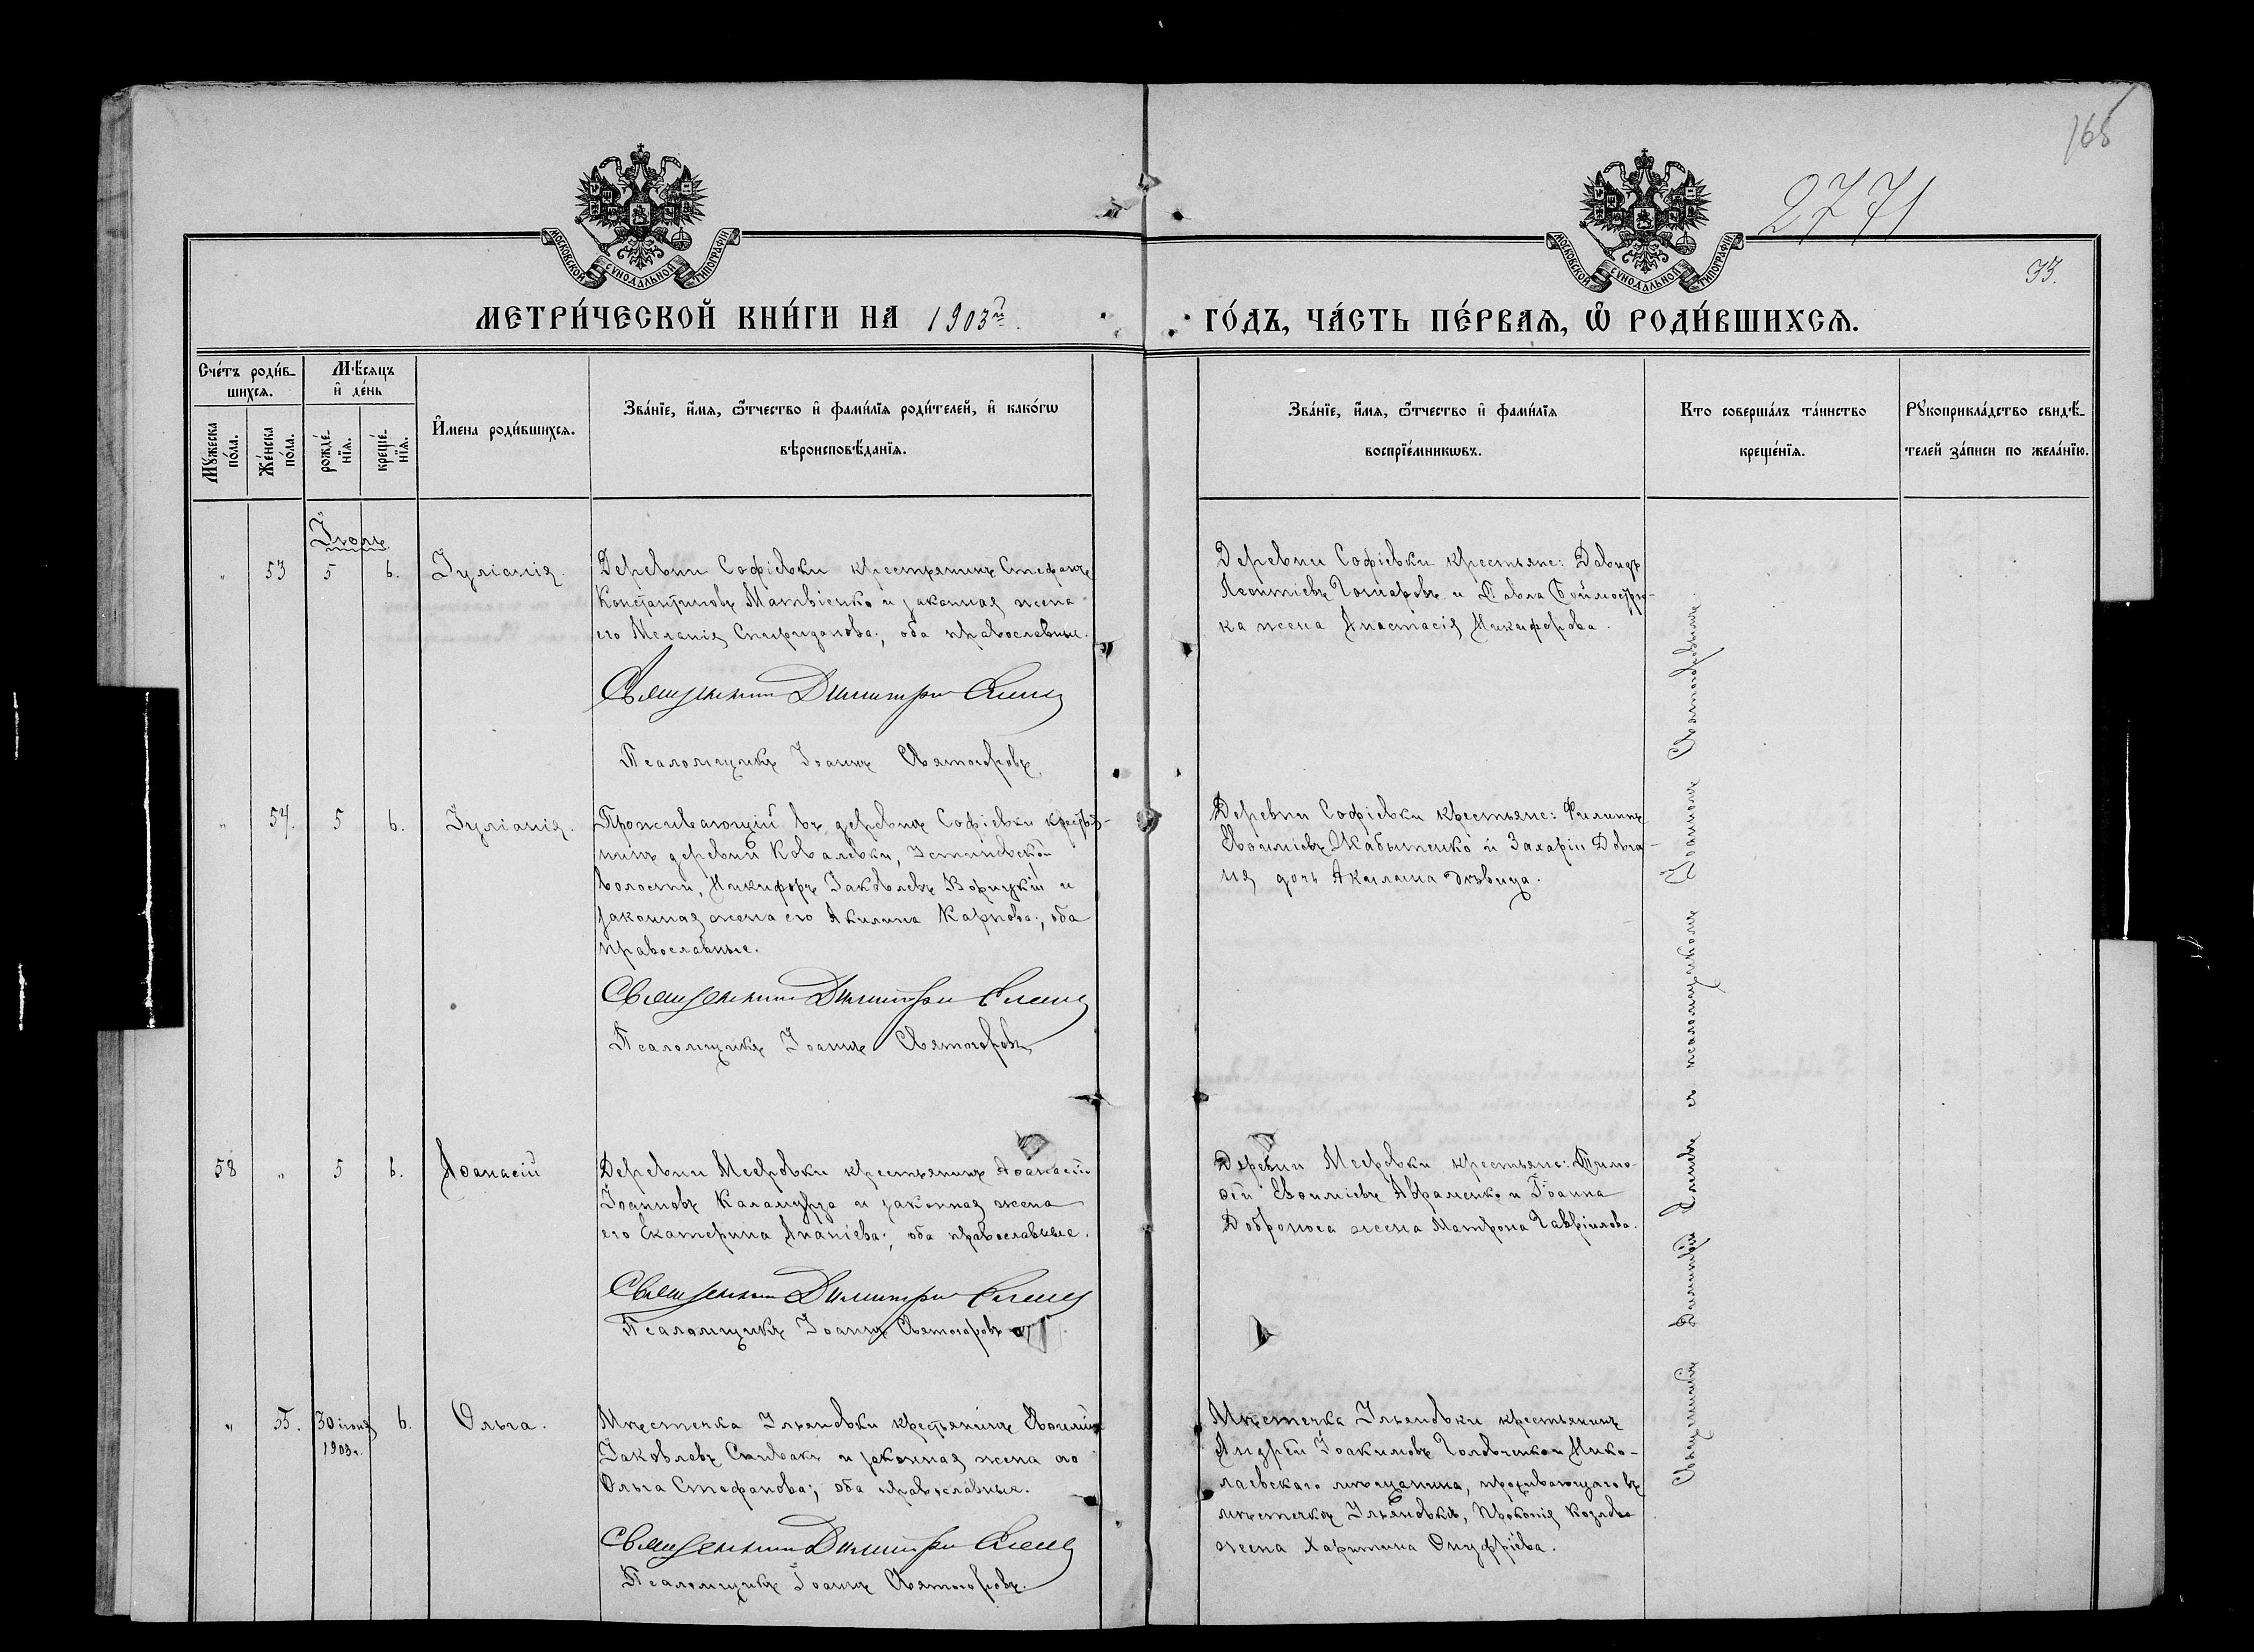 168
2771
33.
МОСКОВСКОЙ СѴНОДАЛЬНОЙ ТИПОГРАФІИ
МОСКОВСКОЙ СѴНОДАЛЬНОЙ ТИПОГРАФІИ
МЕТРИ́ЧЕСКОЙ КНИ́ГИ НА 1903й
ГО́ДЪ, ЧА́СТЬ ПЕ́РВАѦ, Ѡ РОДИ́ВШИХСѦ.
Сче́тъ роди́в-
шихсѧ.
Мꙋ́жеска
по́ла.
Же́нска
по́ла.
Мѣ́сѧцъ
и҆ де́нь
рожде́-
нїѧ.
креще́-
нїѧ.
И҆мена роди́вшихсѧ.
Зва́нїе, и҆́мѧ, ѻ҆́тчество и҆ фами́лїѧ роди́телей, и҆ како́гѡ
вѣроисповѣ́данїѧ.
Зва́нїе, и҆́мѧ, ѻ҆́тчество и҆ фами́лїѧ
воспрїе́мникѡвъ.
Кто соверша́лъ та́инство
креще́нїѧ.
Рꙋкоприкла́дство свидѣ́-
телей за́писи по жела́нїю.
Іюль
" 53 5 6. Іуліанія.
Деревни Софіевки крестьянинъ Стефанъ
Константиновъ Матвіенко и законная жена
его Меланія Спиридонова; оба православные.
Священникъ Димитрій
Псаломщикъ Іоаннъ Святогоровъ
Деревни Софіевки крестьяне: Давидъ
Леонтіевъ Гончаровъ и Павла Боймостру-
ка жена Анастасія Никифорова.
" 54. 5 6. Іуліанія.
Проживающій въ деревнѣ Софіевки крестья-
нинъ деревни Ковалевки, Устиновской
волости, Никифоръ Іаковлевъ и
законная жена его Акилина Карпова; оба
православные.
Священникъ Димитрій
Псаломщикъ Іоаннъ Святогоровъ
Деревни Софіевки крестьяне: Филиппъ
Евѳиміевъ Жабытенко и Захаріи Довга-
ня дочь Акилина дѣвица.
58 " 5 6. Аѳанасій
Деревни Мееровки крестьянинъ Аѳанасій
Іоанновъ Каламурза и законная жена
его Екатерина Ананіева; оба православные.
Священникъ Димитрій
Псаломщикъ Іоаннъ Святогоровъ
Деревни Мееровки крестьяне: Тимо-
ѳей Евѳиміевъ Авраменко и Іоанна
Доброноса жена Матрона Гавріилова.
" 55. 30 іюня 6. Ольга.
1903 г.
Мѣстечка Ульяновки крестьянинъ Евѳимій
Іаковлевъ Спивакъ и законная жена его
Ольга Стефанова; оба православные.
Священникъ Димитрій
Псаломщикъ Іоаннъ Святогоровъ.
Мѣстечка Ульяновки крестьянинъ
Андрей Іоакимовъ Головченко и Нико-
лаевскаго мѣщанина, проживающаго въ
мѣстечкѣ Ульяновкѣ, Прокопія Козлова
жена Харитина Онуфріева.
Священникъ Димитрій съ псаломщикомъ Іоанномъ Святогоровымъ.